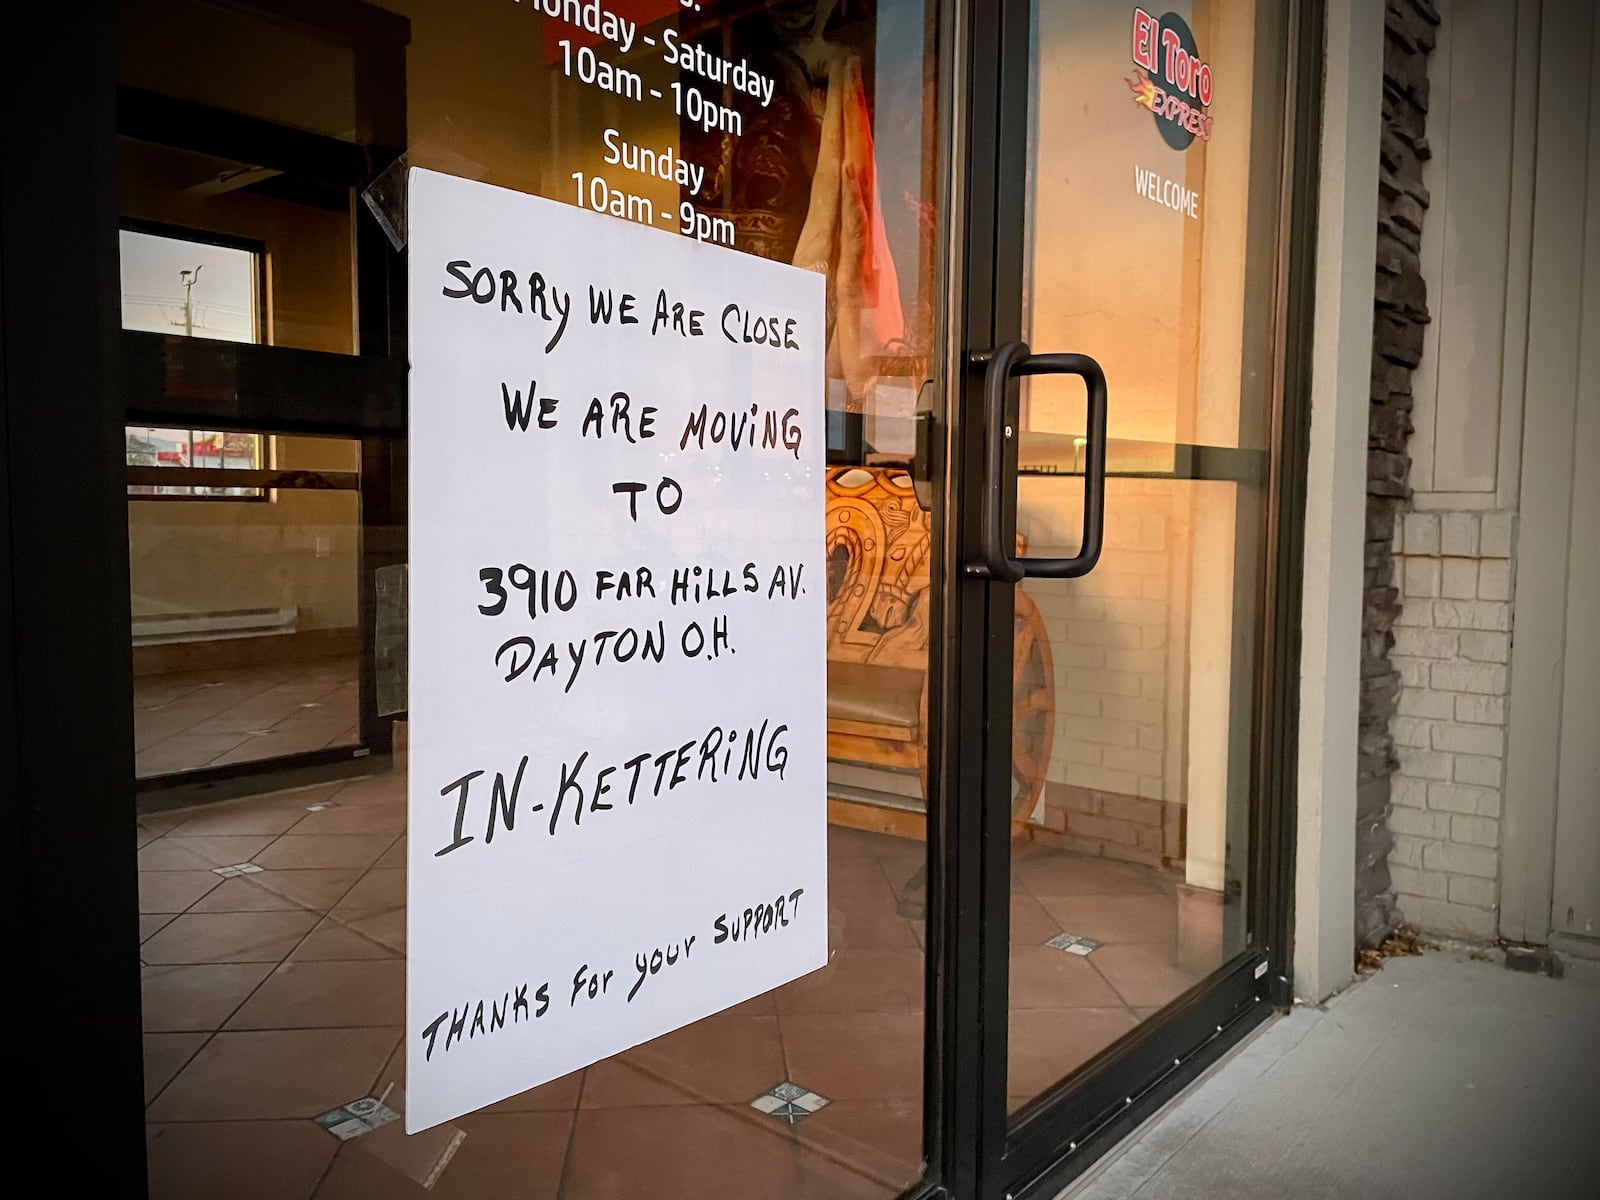 Monday - Saturday
10am - 10pm
Sunday
10am - 9pm
SORRY WE ARE CLOSE
WE ARE MOViNG
TO
3910 FAR HiLLS AV.
DAYTON O.H.
IN-KETTERiNG
THANKS For your SUPPORT
El Toro
EXPRESS
WELCOME